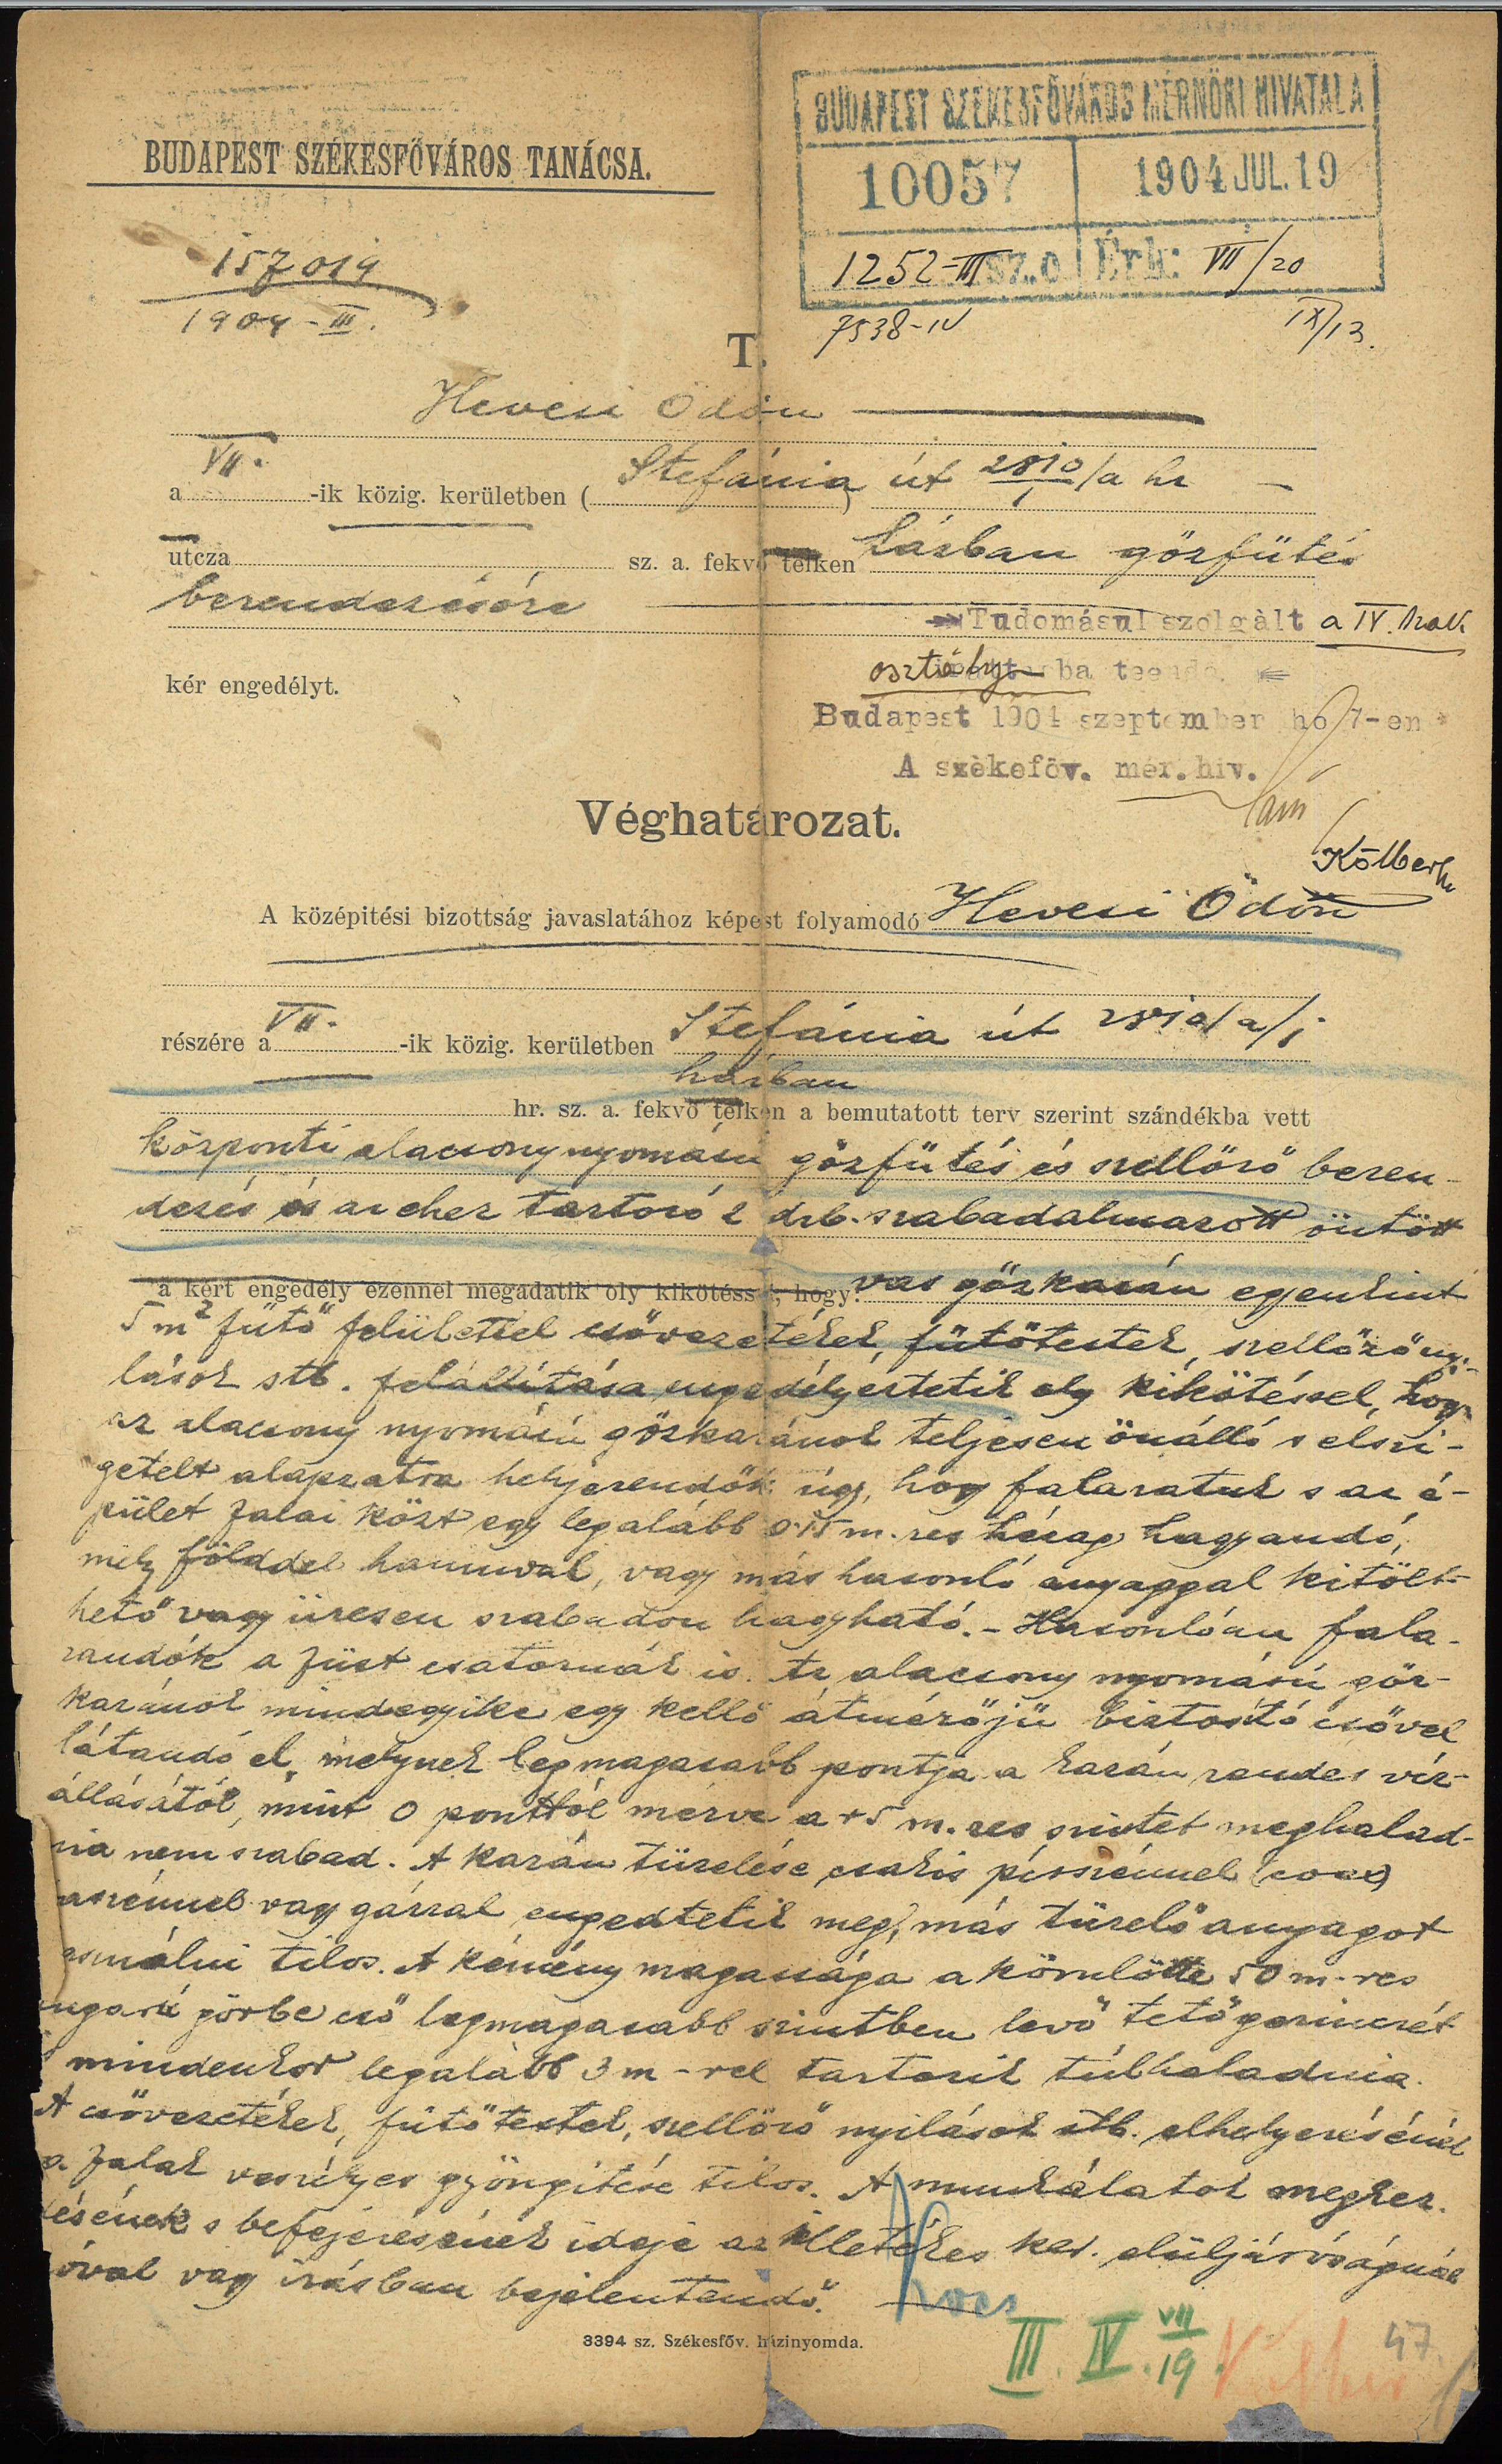 BUDAPEST SZÉKESFŐVÁROS MÉRNÖKI HIVATALA
10057 1904 JUL. 19
1252-III sz. o. Érk: VII/20
7538-IV IX/13.
BUDAPEST SZÉKESFŐVÁROS TANÁCSA.
157019
1904-III.
T.
Hevesi Ödön
a VII. -ik közig. kerületben ( Stefánia út ) 2810/1/a hr
utcza sz. a. fekvő telken házban gőzfűtés
berendezésére
kér engedélyt.
Tudomásul szolgált a IV. szak
osztály ba teendő.
Budapest 1904 szeptember hó 7-en
A székeföv. mér. hiv.
Véghatározat.
A középitési bizottság javaslatához képest folyamodó Hevesi Ödön
részére a VII. -ik közig. kerületben Stefánia út 2810/a/1
házban
hr. sz. a. fekvő telken a bemutatott terv szerint szándékba vett
központi alacsony nyomású gőzfűtés és szellőző beren-
dezés és az ehez tartozó 2 drb. szabadalmazott öntött
a kért engedély ezennel megadatik oly kikötéssel, hogy: vas gőzkazán egyenkint
5 m2 fűtő felülettel csővezetékek, fűtőtestek, szellőző nyi-
lások stb. felállítása engedélyeztetik oly kikötéssel, hogy
az alacsony nyomású gőzkazánok teljesen önálló s elszi-
getelt alapzatra helyezendők úgy, hogy falazatuk s az é-
pület falai közt egy legalább 0.15 m.-res hézag hagyandó,
mely földdel hamuval, vagy más hasonló anyaggal kitölt-
hető vagy üresen szabadon hagyható. - Hasonlóan fala-
zandók a füst csatornák is. Az alacsony nyomású gőz-
kazánok mindegyike egy kellő átmérőjű biztosító csővel
látandó el, melynek legmagasabb pontja a kazán rendes víz-
állásától, mint 0 ponttól mérve a +5 m.-res szintet meghalad-
nia nem szabad. A kazán tüzelése csakis pirszénnel (coax)
aszénnel vagy gázzal engedtetik meg, más tüzelő anyagot
asználni tilos. A kémény magassága a körülötte 50 m-res
ugarú görbe eső legmagasabb szintben levő tetőgerinczét
mindenkor legalább 3 m-rel tartozik túlhaladnia.
A csővezetékek, fűtőtestek, szellőző nyilások stb. elhelyezésénél
a falak veszélyes gyöngitése tilos. A munkálatok megkez-
désének s befejezésének ideje az illetékes ker. elüljáróságnál
óval vagy írásban bejelentendő.
3394 sz. Székesfőv. házinyomda.
III. IV. VII/19.
47.